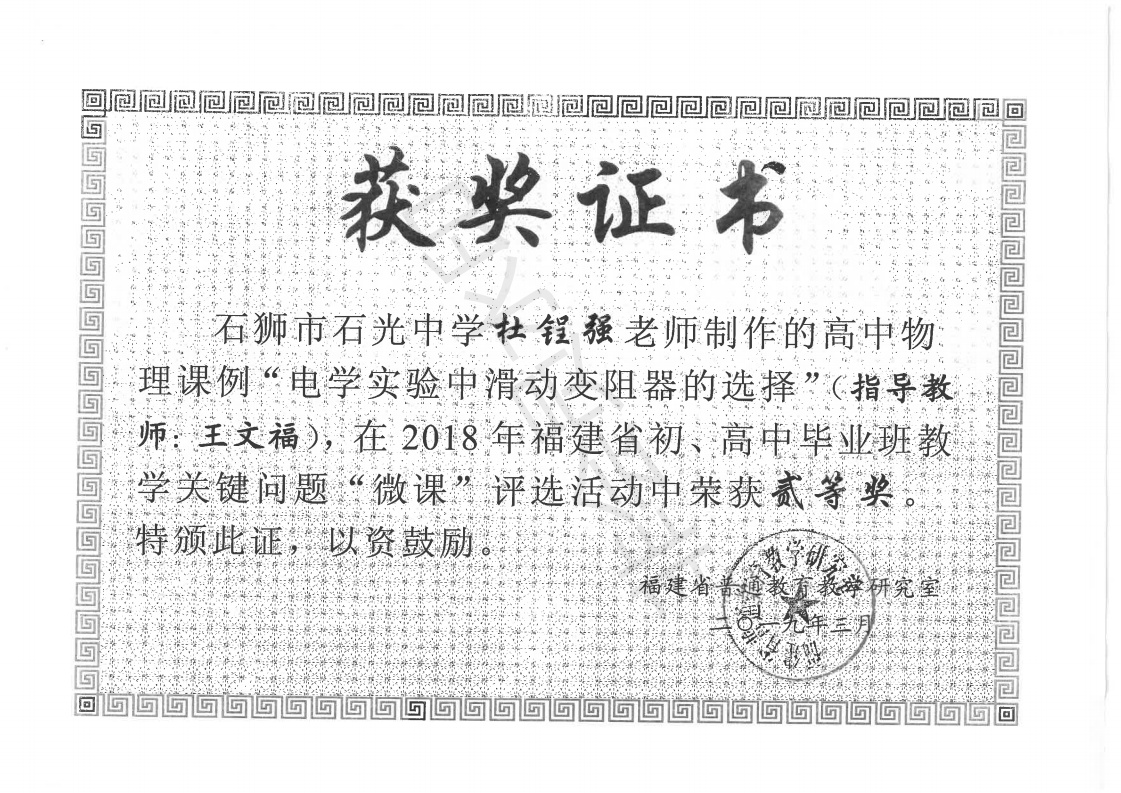 获奖证书
石狮市石光中学杜锃强老师制作的高中物
理课例“电学实验中滑动变阻器的选择”（指导教
师：王文福），在 2018 年福建省初、高中毕业班教
学关键问题“微课”评选活动中荣获贰等奖。
特颁此证，以资鼓励。
福建省普通教育教学研究室
二〇一九年三月